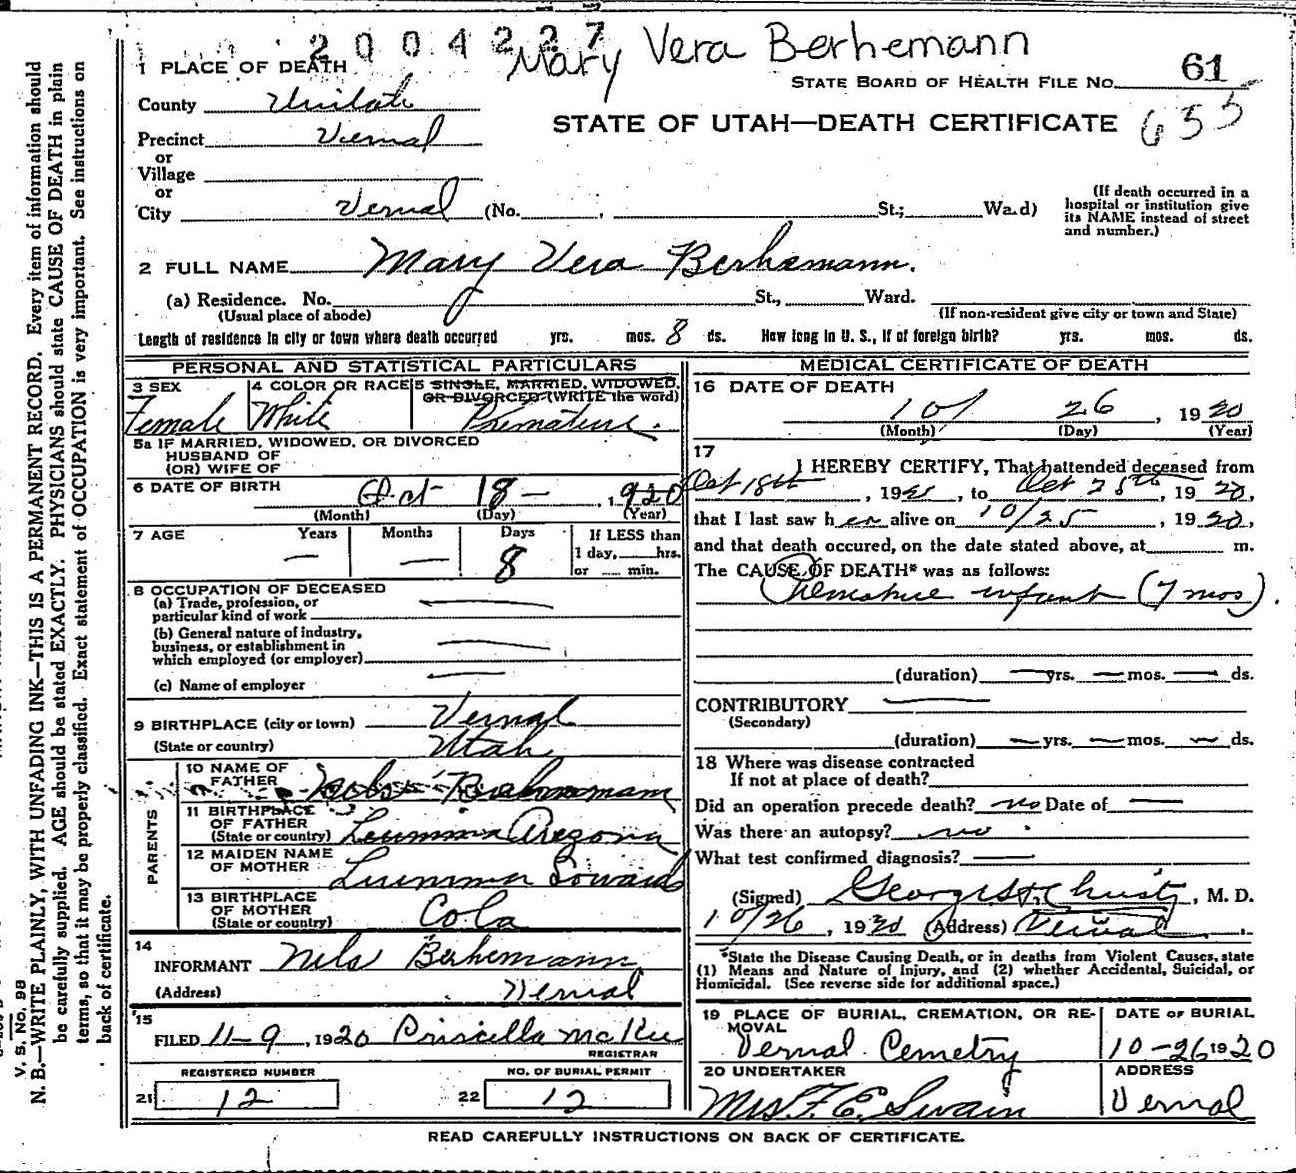 2004227
Mary Vera Berhemann
1 PLACE OF DEATH
STATE BOARD OF HEALTH FILE No. 61
County Uintah
655
STATE OF UTAH—DEATH CERTIFICATE
Precinct Vernal
or
Village
or
City Vernal (No. , St.; Ward)
(If death occurred in a hospital or institution give its NAME instead of street and number.)
2 FULL NAME Mary Vera Berhemann.
(a) Residence. No. St., Ward.
(Usual place of abode)
(If non-resident give city or town and State)
Length of residence in city or town where death occurred yrs. mos. 8 ds. How long in U. S., if of foreign birth? yrs. mos. ds.
PERSONAL AND STATISTICAL PARTICULARS
3 SEX
Female
4 COLOR OR RACE
White
5 SINGLE, MARRIED, WIDOWED, OR DIVORCED (WRITE the word)
Premature.
5a IF MARRIED, WIDOWED, OR DIVORCED
HUSBAND OF
(OR) WIFE OF
6 DATE OF BIRTH Oct 18 – , 1920
(Month) (Day) (Year)
7 AGE Years Months Days If LESS than
— — 8 1 day, hrs.
or min.
8 OCCUPATION OF DECEASED
(a) Trade, profession, or
particular kind of work —
(b) General nature of industry,
business, or establishment in
which employed (or employer) —
(c) Name of employer —
9 BIRTHPLACE (city or town) Vernal
(State or country) Utah
PARENTS
10 NAME OF
FATHER
11 BIRTHPLACE
OF FATHER
(State or country) Arezona
12 MAIDEN NAME
OF MOTHER
13 BIRTHPLACE
OF MOTHER
(State or country) Colo
14
INFORMANT Nels Berhemann
(Address) Vernal
15
FILED 11-9, 1920 Priscilla McKee
REGISTRAR
REGISTERED NUMBER
21 12
NO. OF BURIAL PERMIT
22 12
MEDICAL CERTIFICATE OF DEATH
16 DATE OF DEATH
10/ 26, 1920
(Month) (Day) (Year)
17
I HEREBY CERTIFY, That I attended deceased from
Oct 18th, 192 , to Oct 25th, 1920,
that I last saw her alive on 10/25, 1920,
and that death occured, on the date stated above, at m.
The CAUSE OF DEATH* was as follows:
Premature infant (7 mos).
(duration) — yrs. — mos. — ds.
CONTRIBUTORY —
(Secondary)
(duration) — yrs. — mos. — ds.
18 Where was disease contracted
If not at place of death?
Did an operation precede death? no Date of —
Was there an autopsy? no .
What test confirmed diagnosis? —
(Signed) , M. D.
10/26, 1920 (Address) Vernal
*State the Disease Causing Death, or in deaths from Violent Causes, state
(1) Means and Nature of Injury, and (2) whether Accidental, Suicidal, or
Homicidal. (See reverse side for additional space.)
19 PLACE OF BURIAL, CREMATION, OR RE-
MOVAL
Vernal Cemetry
DATE OF BURIAL
10-26 1920
20 UNDERTAKER
Mrs. F. E. Swain
ADDRESS
Vernal
READ CAREFULLY INSTRUCTIONS ON BACK OF CERTIFICATE.
V. S. No. 98
N. B.—WRITE PLAINLY, WITH UNFADING INK—THIS IS A PERMANENT RECORD. Every item of information should
be carefully supplied. AGE should be stated EXACTLY. PHYSICIANS should state CAUSE OF DEATH in plain
terms, so that it may be properly classified. Exact statement of OCCUPATION is very important. See instructions on
back of certificate.